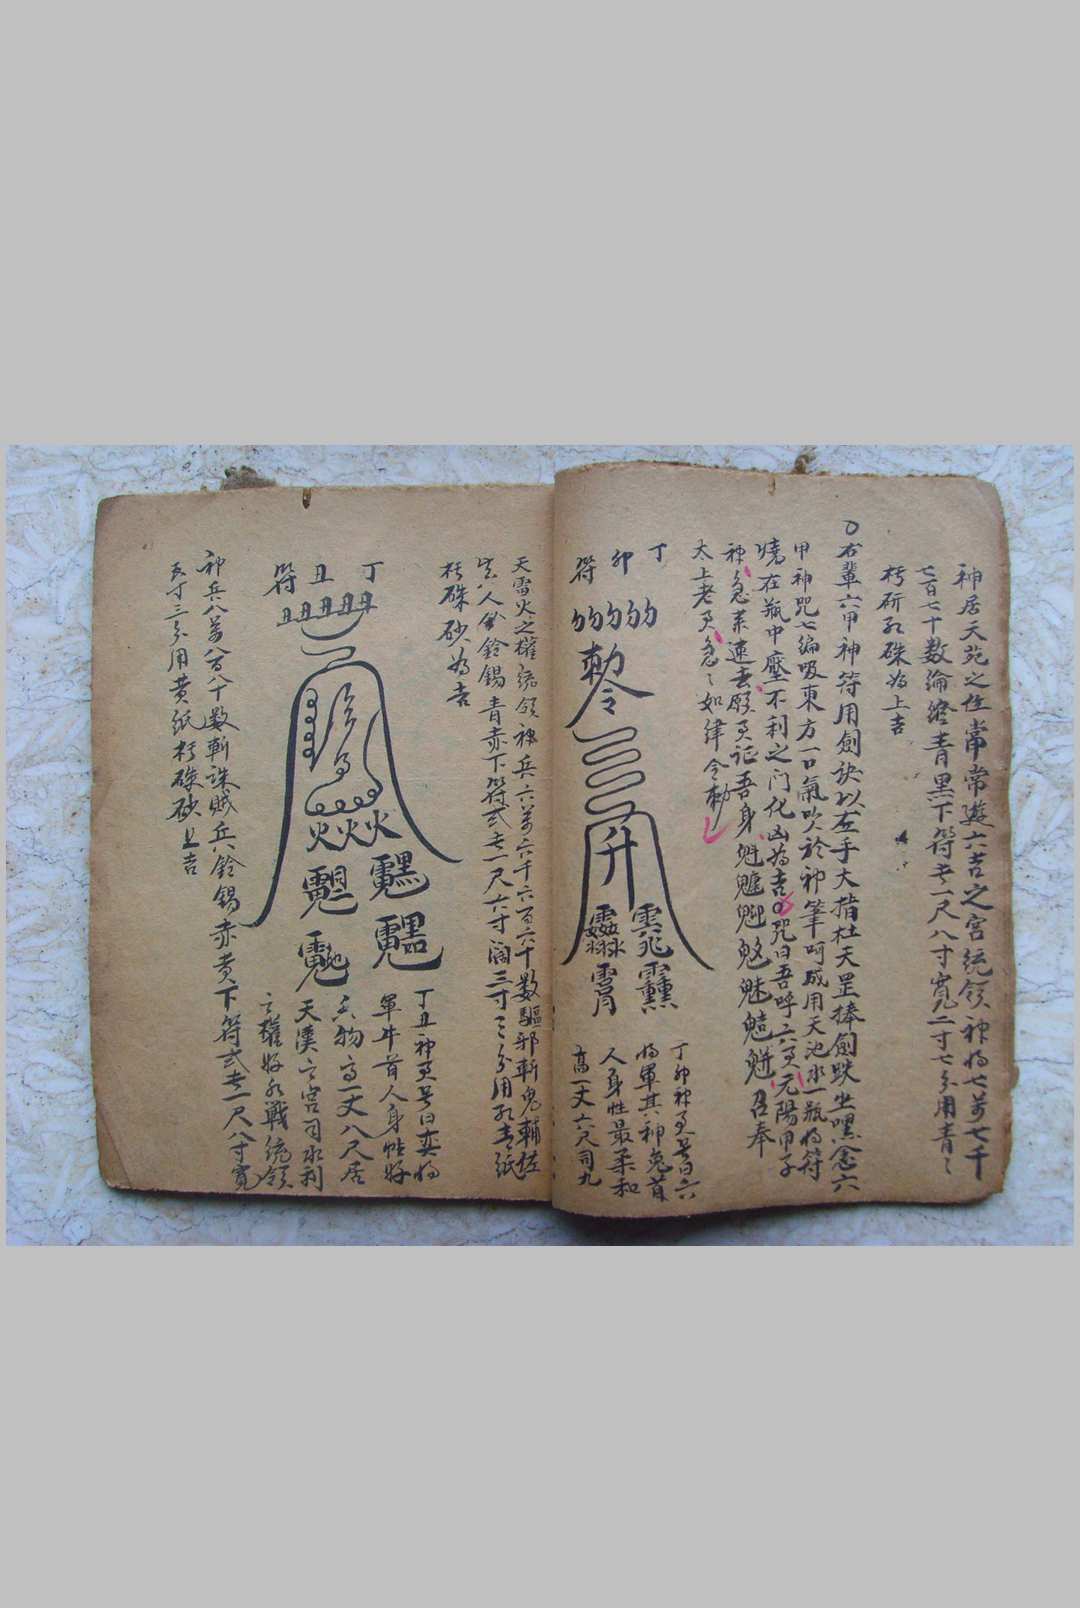 神居天苑之位常常遊六吉之宮統領神将七萬七千
七百七十數淪滄青黑下符長一尺八寸寬二寸七分用青之
朽研孔硃為上吉
右輩六甲神符用劍訣以左手大指杜天罡捧劍趺坐嘿念六
甲神咒七編吸東方一口氣吹於神筆呵成用天池水一瓶将符
燒在瓶中壓不利之门化凶為吉咒曰吾呼六灵元陽甲子
神急素速去願灵証吾身魁魁召奉
太上老君急之如律令勅
丁卯符
勅令
丁卯神灵号曰六
将軍其神兔首
人身性最柔和
高一丈六尺司九
天雷火之權統領神兵六萬六千六百六十數驅邪斬鬼輔佐
人鈴錫青赤下符式長一尺六寸阔三寸三分用紙
硃砂為吉
丁丑符
丑丑丑丑丑
火火火
丁丑神灵号曰奕将
軍牛首人身帖好
物高一丈八尺居
天漢之宮司水利
之權好水戰統領
神兵八萬八百八十數斬誅賊兵鈴錫赤黄下符式長一尺八寸寬
五寸三分用黄紙硃砂上吉